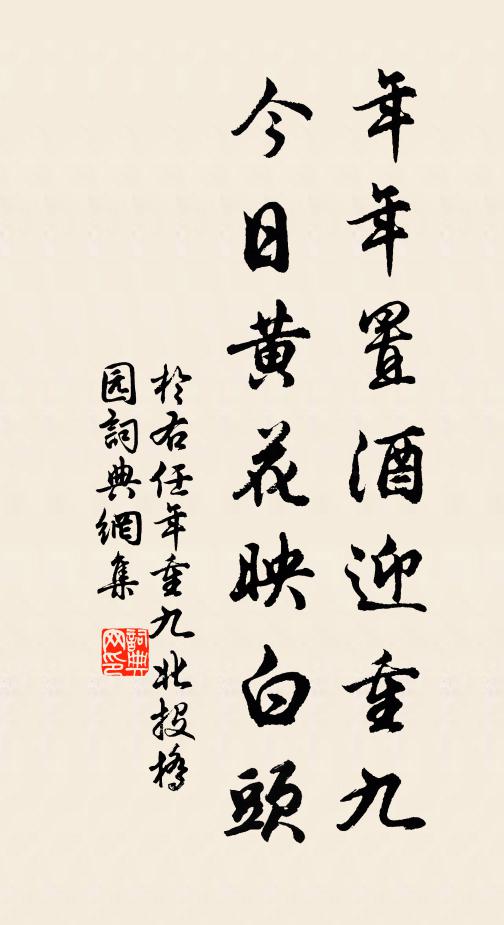 年年置酒迎重九
今日黄花映白頭
於右任年重九北投橋
园詞典網集
詞典网印